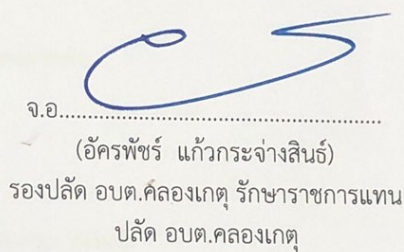 จ.อ.......................................................
(อัครพัชร์ แก้วกระจ่างสินธ์)
รองปลัด อบต.คลองเกตุ รักษาราชการแทน
ปลัด อบต.คลองเกตุ